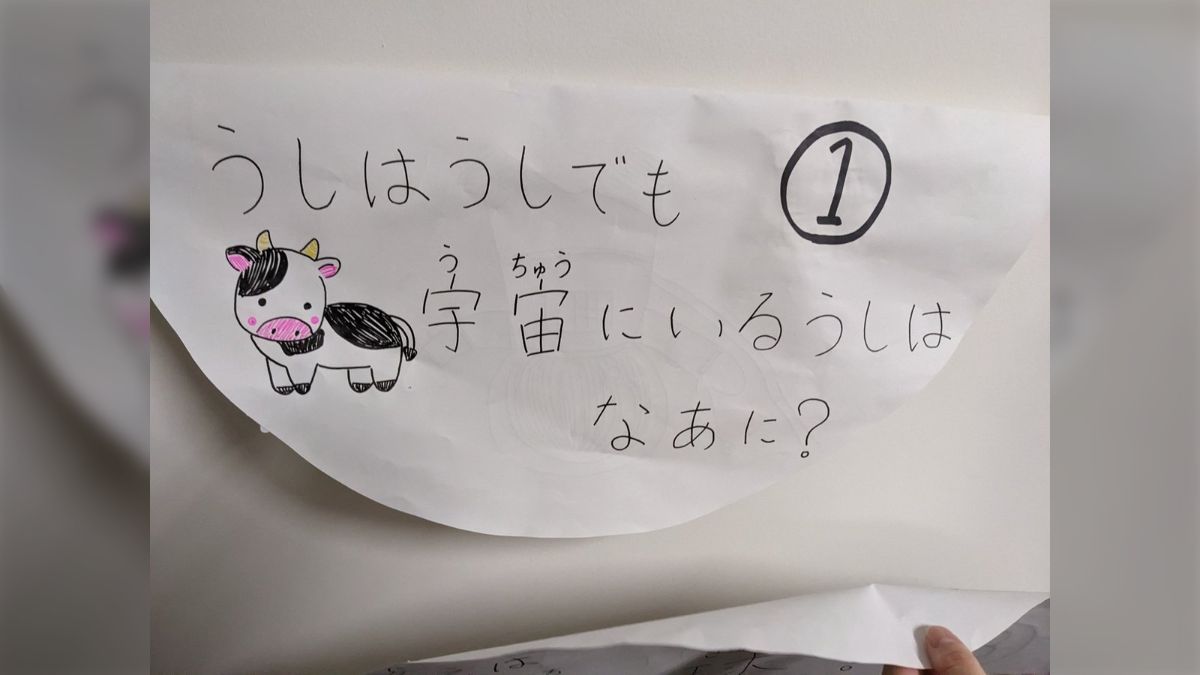 うしはうしでも
①
う ちゅう
宇宙にいるうしは
なあに?